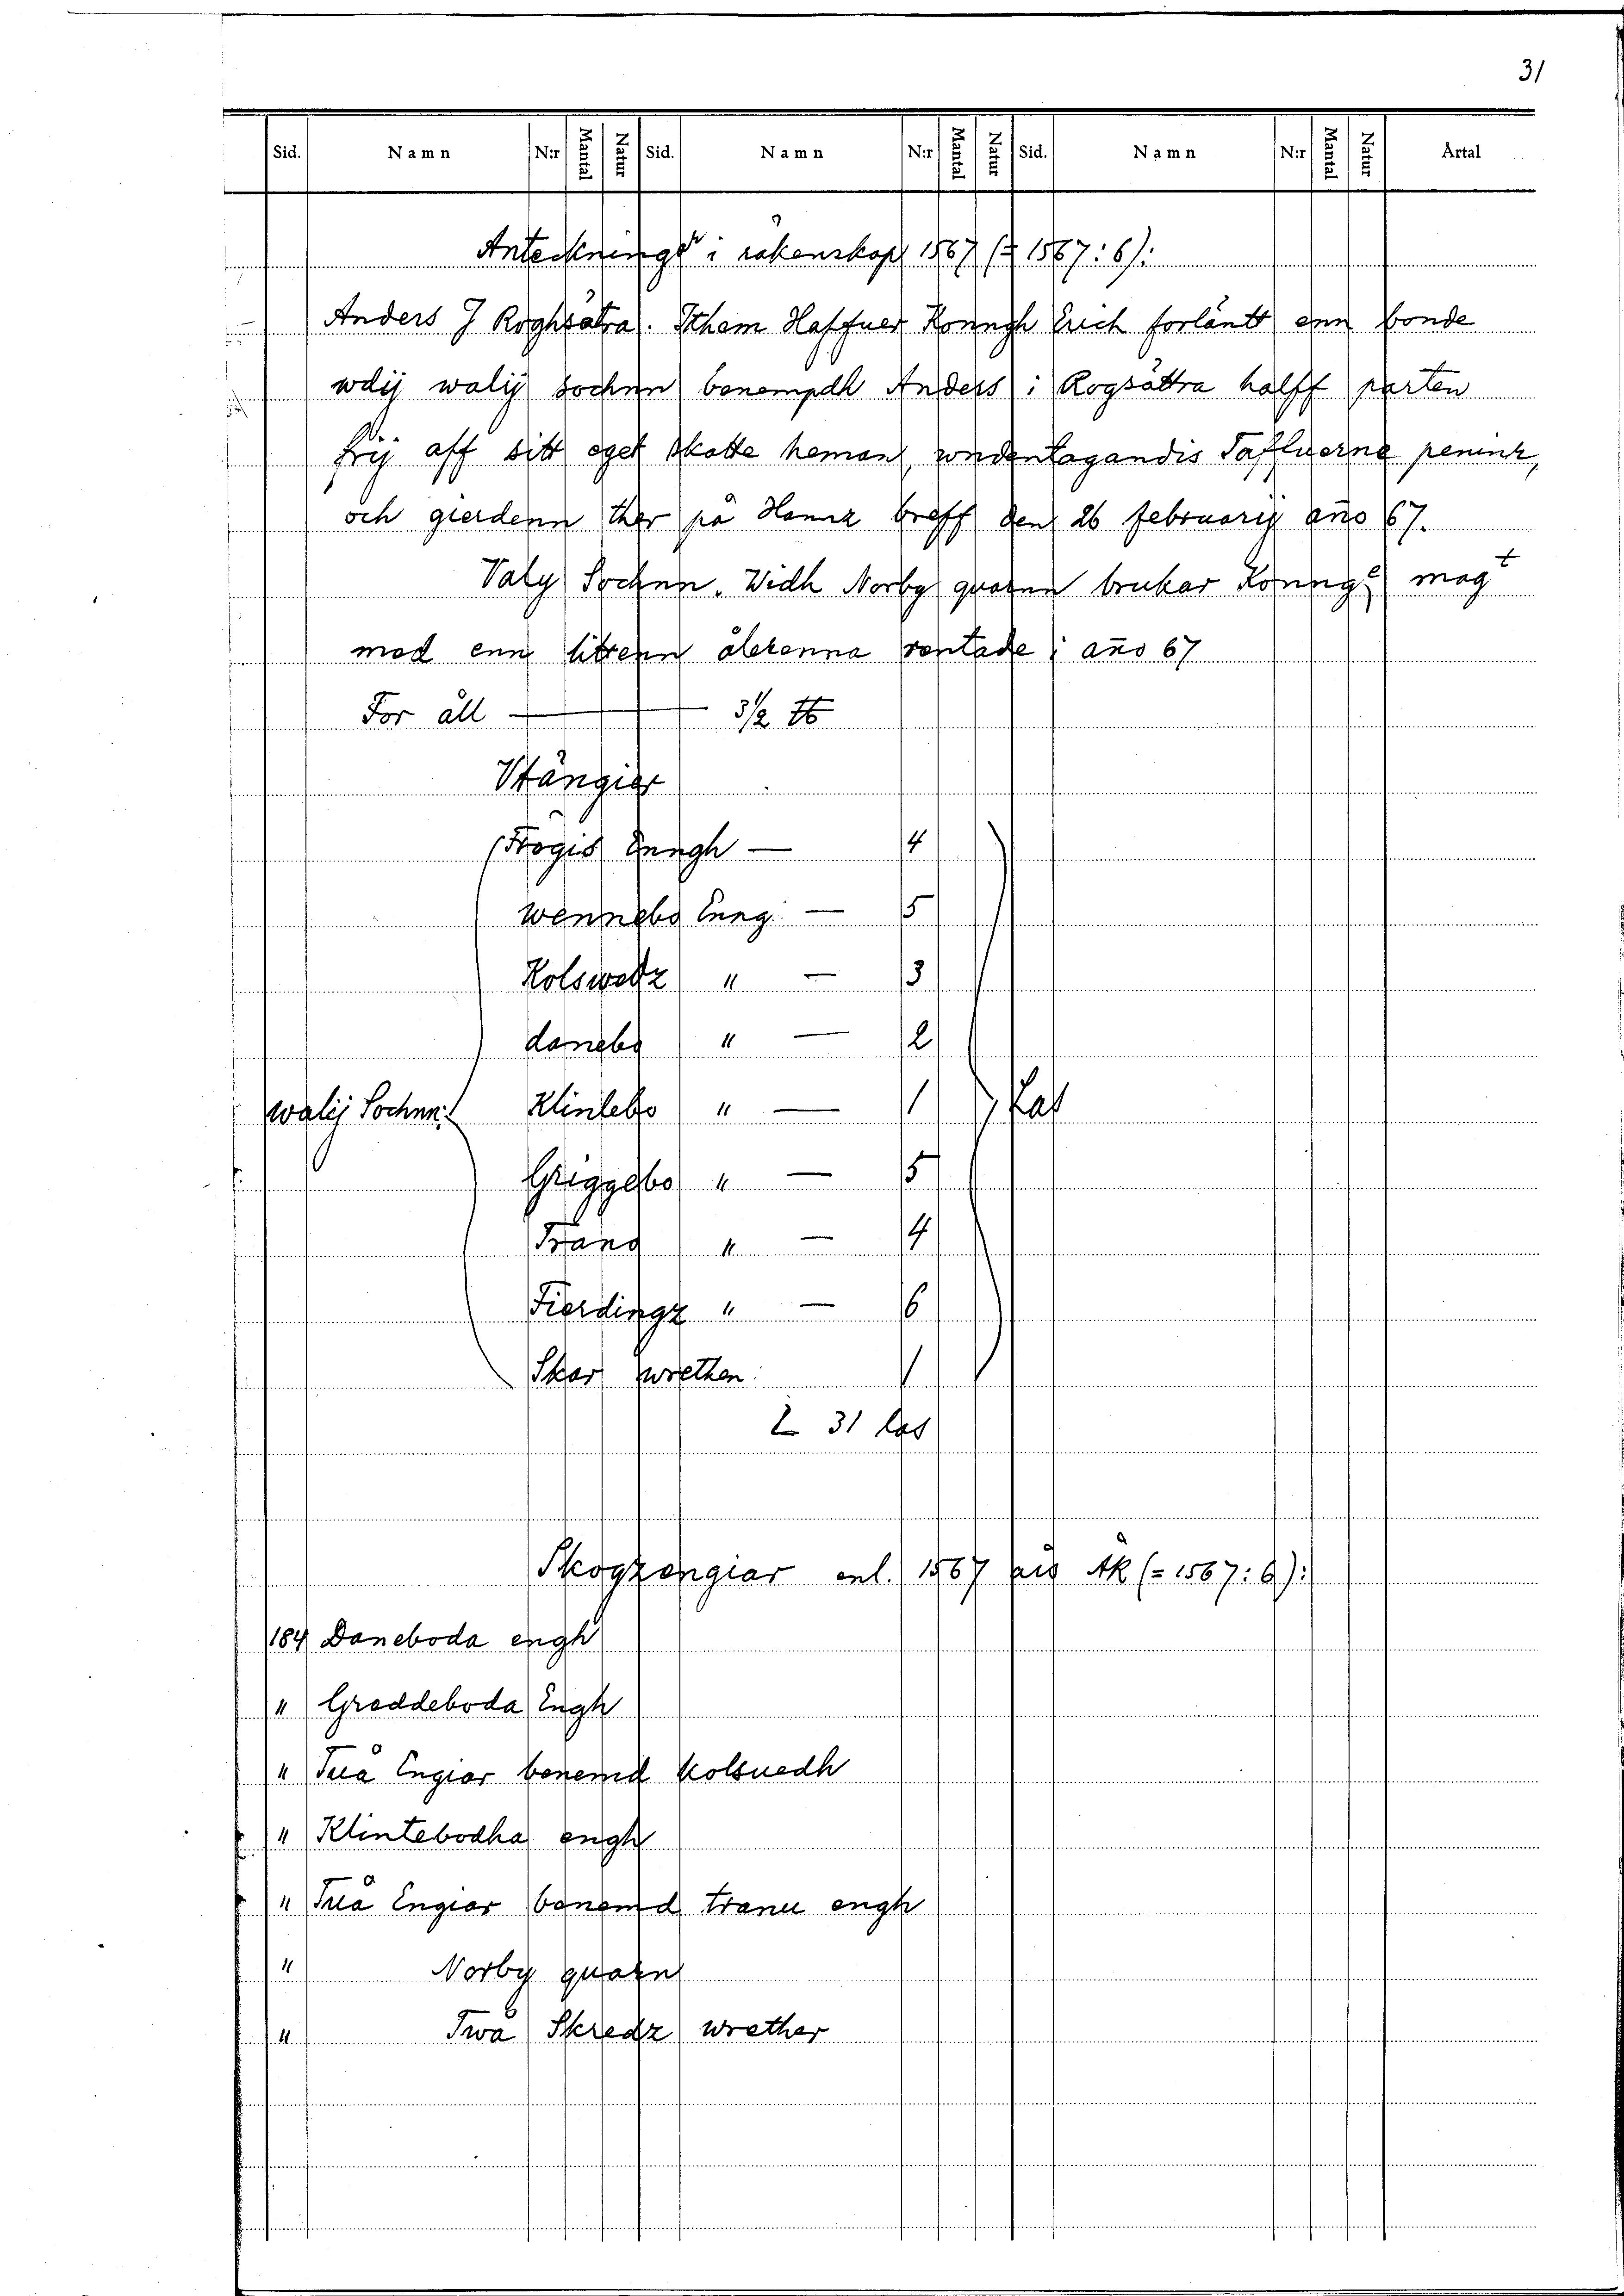 31
Sid. Namn N:r Mantal Natur Sid. Namn N:r Mantal Natur Sid. Namn N:r Mantal Natur Årtal
Anteckningr i räkenskap 1567 (= 1567:6):
Anders J Roghsätra. Ithem Haffuer Konngh Erich forläntt enn bonde
wdij walij sochnn benempdh Anders i Rogsättra halff parten
frij aff sitt eget skatte heman, wndentagandis Taffluerne penink,
och gierdenn ther på Hannz breff den 26 februarij año 67.
Valy Sochnn. Widh Norby quarnn brukar Konnge magt
mad enn litenn ålekenna rentade i año 67
For åll — 3½ ℔
Vtängier
Frögis Enngh — 4
wennebo Enng — 5
Kolswedz " — 3
danebo " — 2
walij Sochnn: Klintebo " — 1 Las
Griggebo " — 5
Trano " — 4
Fierdingz " — 6
Skar wrethen 1
L 31 las
Skogzengiar enl. 1567 års ÄR (= 1567:6):
184 Daneboda engh
" Graddeboda Engh
" Tuå Engiar benemd kolsuedh
" Klintebodha engh
" Tuå Engiar benemd tranu engh
" Norby quarn
" Twå Skredz wrether